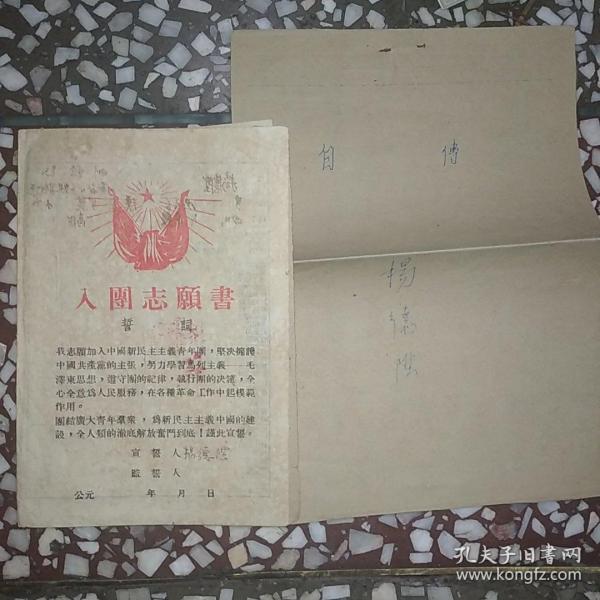 入團志願書
誓詞
我志願加入中國新民主主義青年團,堅决擁護
中國共產黨的主張,努力學習馬列主義——毛
澤東思想,遵守團的紀律,執行團的决議,全
心全意爲人民服務,在各種革命工作中起模範
作用。
團結廣大青年羣衆,爲新民主主義中國的建
設,全人類的澈底解放奮鬥到底!謹此宣誓。
宣誓人 楊德
監誓人
公元 年 月 日
自傳
楊德
孔夫子旧书网
www.kongfz.com